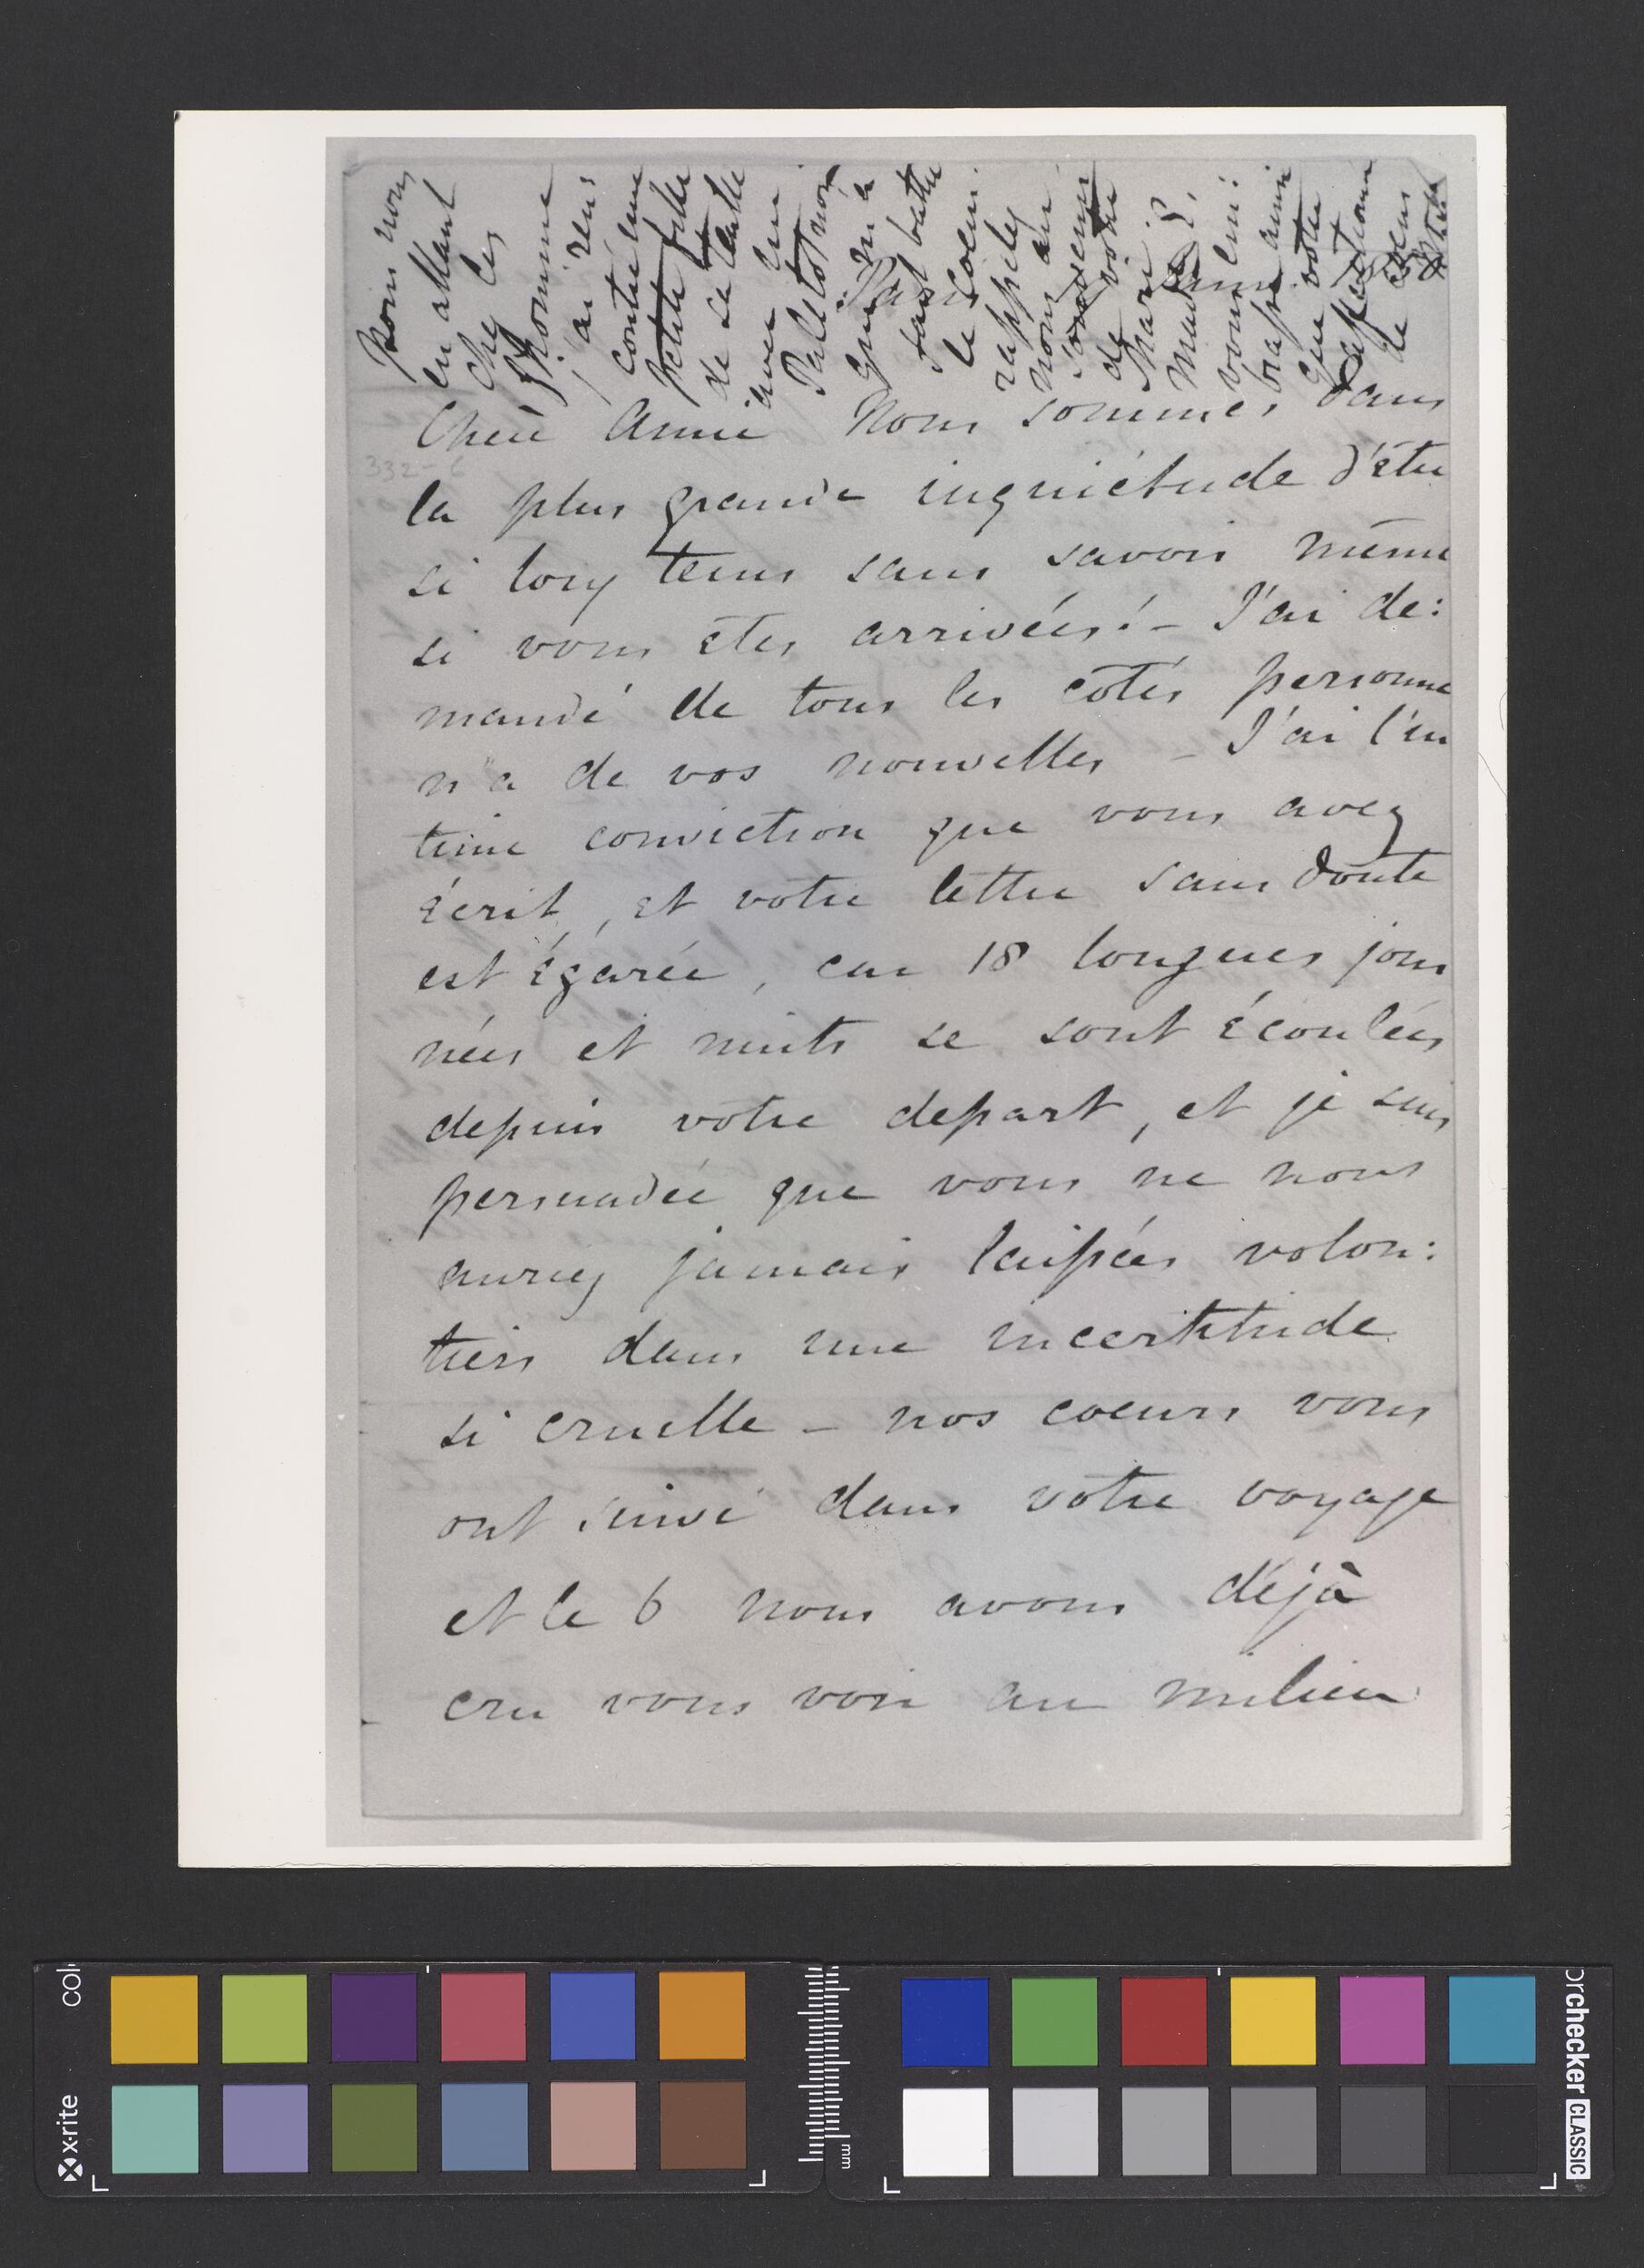 Pour nous
en allant
chez les
j'ai ren:
contré une
petite fille
de sa taille
avec un
Paletot noir
qui m'a
fait battre
le coeur.
rappelez
nous au
souvenir
de votre
Mari.
que votre
de coeur
Chère Amie Nous sommes dans
332-6
la plus grande inquiétude d'être
si long tems sans savoir même
si vous êtes arrivées! – J'ai de:
mandé de tous les côtés personne
n'a de vos nouvelles – J'ai l'in
time conviction que vous avez
écrit, et votre lettre sans doute
est égarée, car 18 longues jour
nées et nuits se sont écoulées
depuis votre depart, et je suis
persuadée que vous ne nous
auriez jamais laissées volon:
tiers dans une incertitude
si cruelle – nos coeurs vous
ont suivi dans votre voyage
et le 6 nous avons déjà
cru vous voir au milieu
x-rite
colorchecker CLASSIC
mm